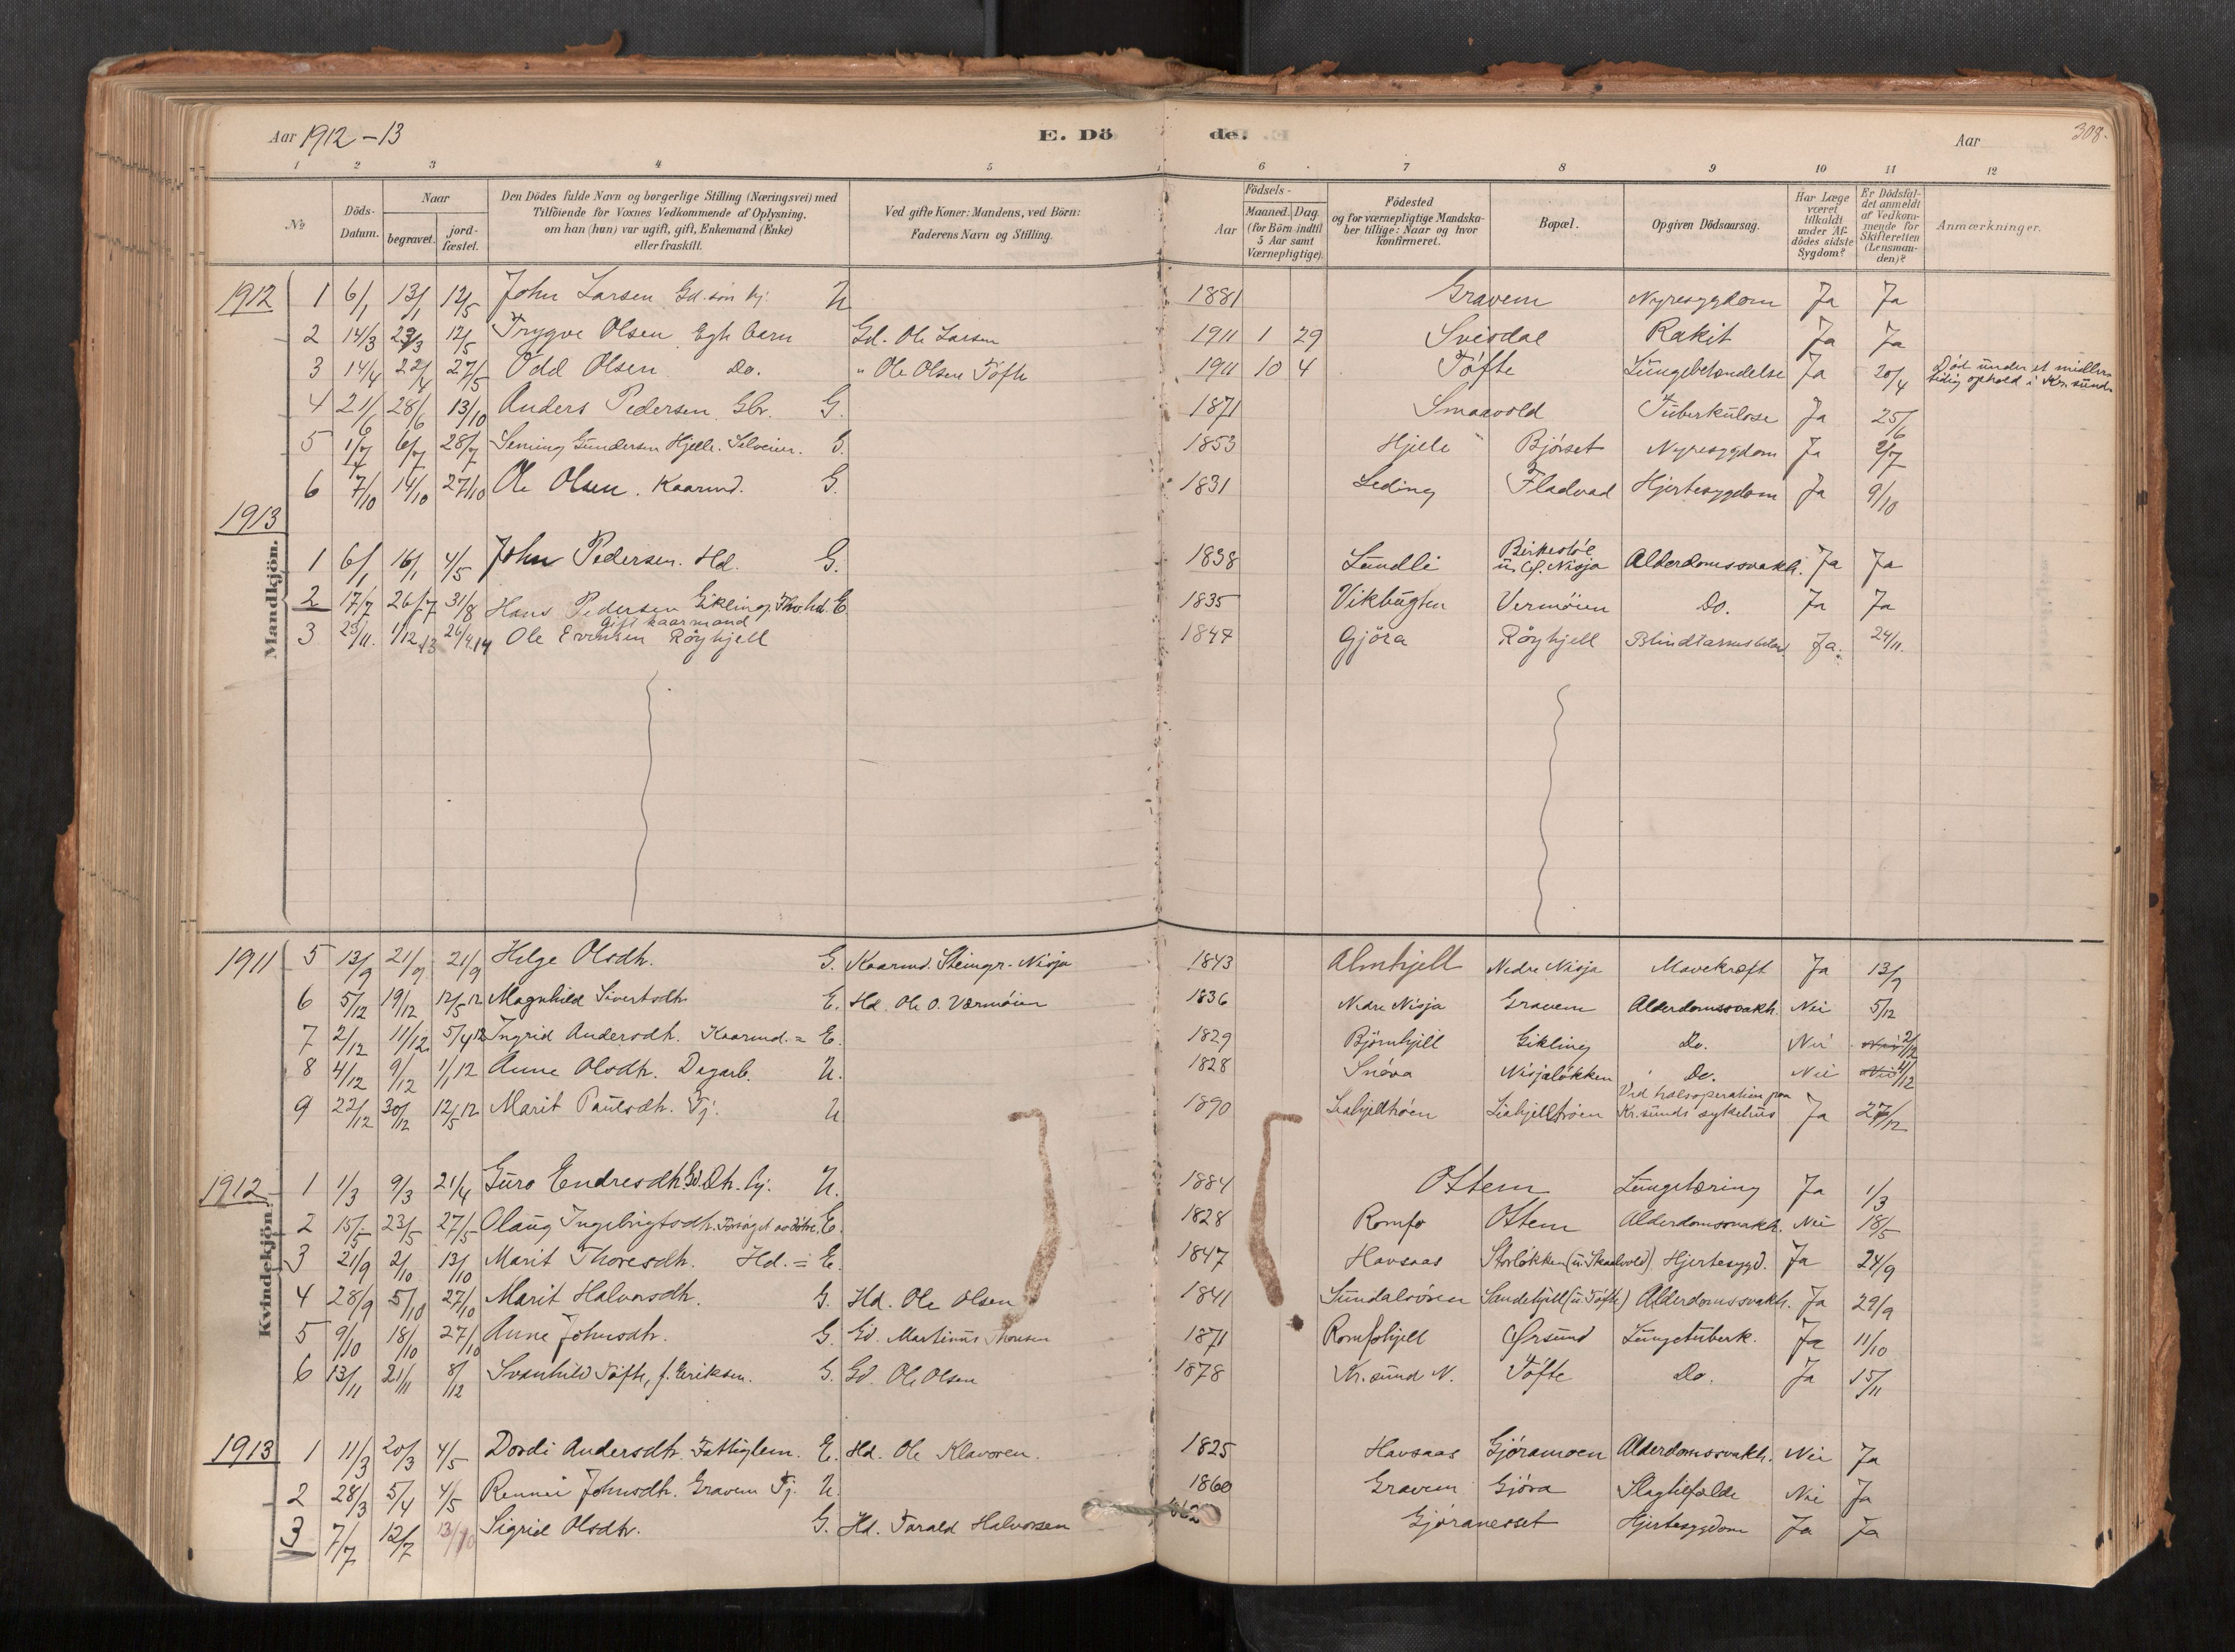 Aar 1912-13 E. Döde. Aar 308.
1 2 3 4 5 6 7 8 9 10 11 12
№ Döds-Datum. Naar begravet. jord-fæstet. Den Dödes fulde Navn og borgerlige Stilling (Næringsvei) med Tilföiende for Voxnes Vedkommende af Oplysning, om han (hun) var ugift, gift, Enkemand (Enke) eller fraskilt. Ved gifte Koner: Mandens, ved Börn: Faderens Navn og Stilling. Födsels- Aar Maaned. Dag. (for Börn indtil 5 Aar samt Værnepligtige). Födested og for værnepligtige Mandskaber tillige: Naar og hvor konfirmeret. Bopæl. Opgiven Dödsaarsag. Har Læge været tilkaldt under Afdödes sidste Sygdom? Er Dödsfaldet anmeldt af Vedkommende for Skifteretten (Lensmanden)? Anmærkninger.
Mandkjön.
1912 1 6/1 13/1 12/5 John Larsen Gd.søn hj. U 1881 Gravem Nyresygdom Ja Ja
2 14/3 23/3 12/5 Trygve Olsen Egt. barn Gd. Ole Larsen 1911 1 29 Svisdal Rakit Ja Ja
3 14/4 22/4 27/5 Odd Olsen Do. " Ole Olsen Tøfte 1911 10 4 Tøfte Lungebetændelse Ja 20/4 Død under et midlertidig ophold i Kr.sund
4 21/6 28/6 13/10 Anders Pedersen Gbr. G. 1871 Smaavold Tuberkulose Ja 25/6
5 1/7 6/7 28/7 Seming Gundersen Hjelle. Selveier. G. 1853 Hjelle Bjørset Nyresygdom Ja 2/7
6 7/10 14/10 27/10 Ole Olsen. Kaarmd. G. 1831 Leding Fladvad Hjertesygdom Ja 9/10
1913
1 6/1 16/1 4/5 John Pedersen. Hd. G. 1838 Lundli Birkestøl u. Nisja Alderdomssvakh. Ja Ja
2 17/7 26/7 31/8 Hans Pedersen Gikling, E. 1835 Vikbugten Vermøien Do. Ja Ja
3 23/11. 1/12 13 26/4 14 Ole Evensen Røyhjell Gift kaarmand 1847 Gjöra Röyhjell Blindtarmsbetænd. Ja. 24/11.
Kvindekjön.
1911 5 13/9 21/9 21/9 Helge Olsdtr. G. Kaarmd. Steingr. Nisja 1843 Almhjell Nedre Nisja Mavekræft Ja 13/9
6 5/12 19/12 12/5 12 Magnhild Sivertsdtr. E. Hd. Ole O. Værmøien 1836 Nedre Nisja Gravem Alderdomssvakh. Nei 5/12
7 2/12 11/12 5/4 12 Ingrid Andersdtr. Kaarmd. = E. 1829 Bjørnhjell Gikling Do. Nei Nei 2/12
8 4/12 9/12 1/1 12 Anne Olsdtr. Dagarb. U. 1828 Snøva Nisjaløkken Do. Nei Nei 4/12
9 22/12 30/12 12/5 12 Marit Paulsdtr. Tj. U 1890 Liahjelltrøen Liahjelltrøen Ved halsoperation paa Kr.sunds sykehus Ja 27/12
1912 1 1/3 9/3 21/4 Guro Endresdtr. Gd.Dtr. hj. U. 1884 Ottem Lungetæring Ja 1/3
2 15/5 23/5 27/5 Olaug Ingebrigtsdtr. Forsørget av døtre. E. 1828 Romfo Ottem Alderdomssvakh. Nei 18/5
3 21/9 2/10 13/10 Marit Thoresdtr. Hd. = E. 1847 Havsaas Storløkken (u. Skaalvold) Hjertesygd. Ja 24/9
4 28/9 5/10 27/10 Marit Halvorsdtr. G. Hd. Ole Olsen 1841 Sundalsøren Sandehjell (u. Tøfte) Alderdomssvakh. Ja 29/9
5 9/10 18/10 27/10 Anne Johnsdtr. G. Gd. Martinus Thoresen 1871 Romfohjell Ørsund Lungetuberk. Ja 11/10
6 13/11 21/11 8/12 Svanhild Tøfte, f. Eriksen. G. Gd. Ole Olsen 1878 Kr.sund N. Tøfte Do. Ja 15/11
1913 1 11/3 20/3 4/5 Dordi Andersdtr. Fattiglem. E. Hd. Ole Klavoren. 1825 Havsaas Gjøramoen Alderdomssvakh. Nei Ja
2 28/3 5/4 4/5 Rennei Johnsdtr. Gravem Tj. U. 1860 Gravem Gjøra Slagtilfælde Nei Ja
3 7/7 12/7 13/10 Sigrid Olsdtr. G. Hd. Tarald Halvorsen 1862 Gjøranesset Hjertesygdom Ja Ja